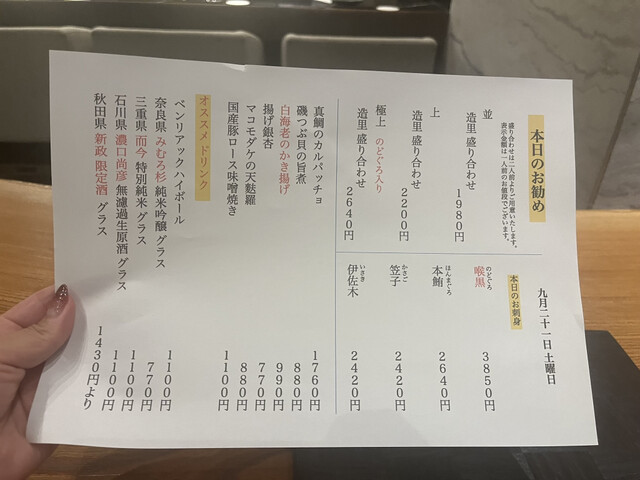 九月二十一日 土曜日
本日のお勧め
盛り合わせは二人前よりご用意いたします。
表示金額は一人前のお値段でございます。
並
造里 盛り合わせ 1980円
上
造里 盛り合わせ 2200円
極上 のどぐろ入り
造里 盛り合わせ 2640円
本日のお刺身
のどぐろ
喉黒 3850円
ほんまぐろ
本鮪 2640円
かさご
笠子 2420円
いさき
伊佐木 2420円
真鯛のカルパッチョ 1760円
磯つぶ貝の旨煮 880円
白海老のかき揚げ 990円
揚げ銀杏 770円
マコモダケの天麩羅 880円
国産豚ロース味噌焼き 1100円
オススメドリンク
ベンリアックハイボール 1100円
奈良県 みむろ杉 純米吟醸 グラス 770円
三重県 而今 特別純米 グラス 1100円
石川県 濃口尚彦 無濾過生原酒 グラス 1100円
秋田県 新政 限定酒 グラス 1430円より